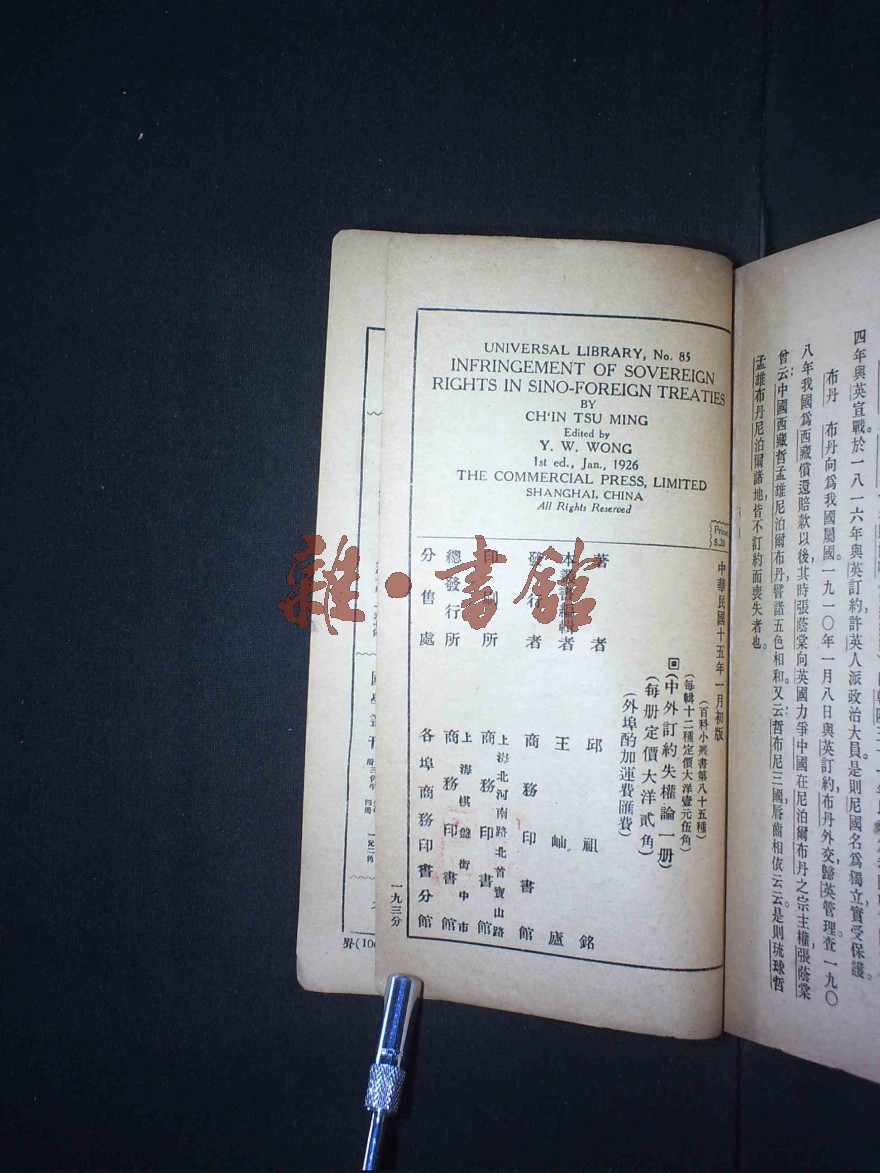 四年與英宣戰於一八一六年與英訂約許英人派政治大員是則尼國名爲獨立實受保護。
布丹　布丹向爲我國屬國一九一〇年一月八日與英訂約布丹外交歸英管理查一九〇
八年我國爲西藏償還賠款以後其時張蔭棠向英國力爭中國在尼泊爾布丹之宗主權張蔭棠
曾云中國西藏哲孟雄尼泊爾布丹譬諸五色相和又云哲布尼三國唇齒相依云云是則琉球哲
孟雄布丹尼泊爾諸地皆不訂約而喪失者也。
UNIVERSAL LIBRARY, No. 85
INFRINGEMENT OF SOVEREIGN
RIGHTS IN SINO-FOREIGN TREATIES
BY
CH'IN TSU MING
Edited by
Y. W. WONG
1st ed., Jan., 1926
THE COMMERCIAL PRESS, LIMITED
SHANGHAI, CHINA
All Rights Reserved
中華民國十五年一月初版
(百科小叢書第八十五種)
(每輯十二種定價大洋壹元伍角)
(中外訂約失權論一册)
(每册定價大洋貳角)
(外埠酌加運費匯費)
著者 邱祖銘
本叢書編輯者 王岫廬
發行者 商務印書館
印刷所 上海北河南路北首寶山路 商務印書館
總發行所 上海棋盤街中市 商務印書館
分售處 各埠商務印書分館
一九三分
雜·書館